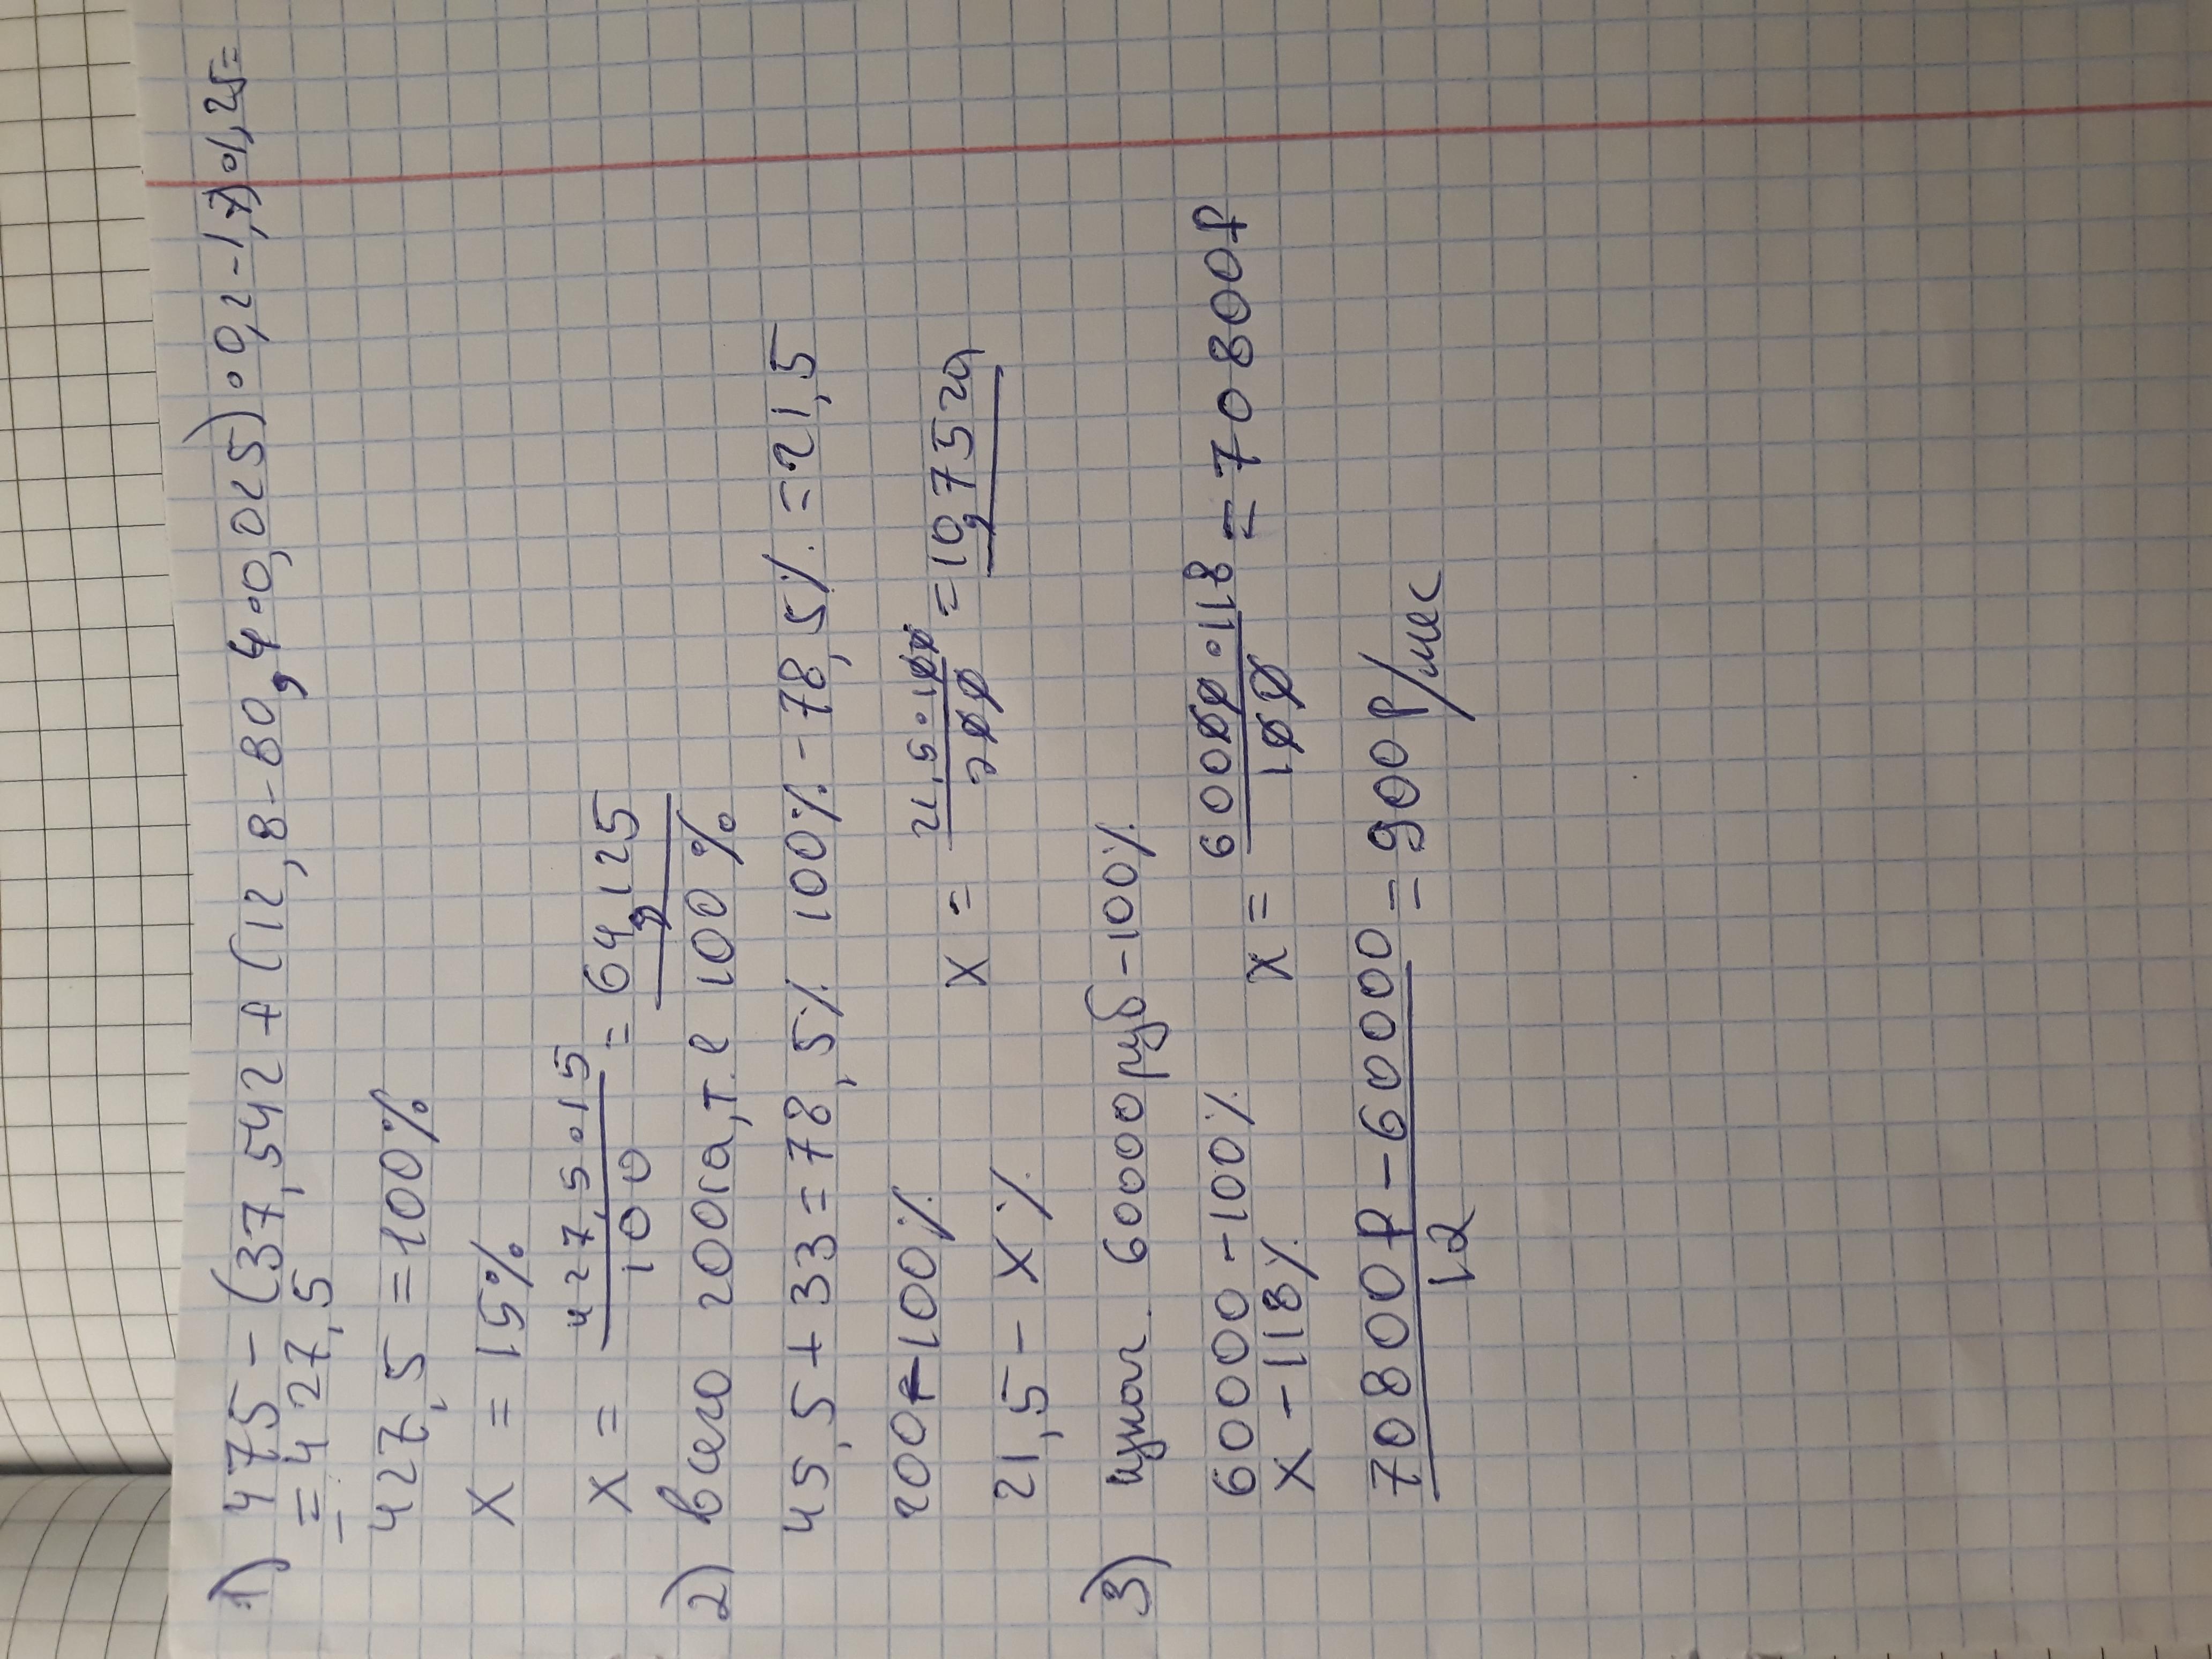 1) 475 - (37,542 + (12,8 - 80,4 · 0,025) · 0,2 - 1,7) · 1,25 =
= 427,5
427,5 = 100%
X = 15%
X = 427,5 · 15 / 100 = 64,125
2) всего 200га, т.е 100%
45,5 + 33 = 78,5% 100% - 78,5% = 21,5
200 - 100%
21,5 - X% X = 21,5 · 100 / 200 = 10,75
3) 60000 руб - 100%
60000 - 100%
X - 118% X = 60000 · 118 / 100 = 70800р
70800р - 60000 / 12 = 900 р/мес